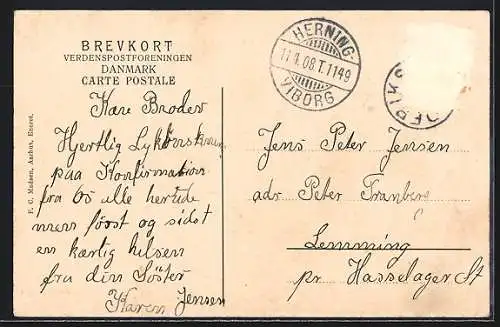 BREVKORT
VERDENSPOSTFORENINGEN
DANMARK
CARTE POSTALE
HERNING-
11.4.08.T.1149
VIBORG
Kære Broder
Hjertlig Lykønskning
paa Konfirmation
fra os alle herude
men först og sidst
en kærlig hilsen
fra din Söster
Karen Jensen
Jens Peter Jensen
adr Peter Tranberg
Lemming
pr Hasselager St
F. C. Madsen, Aarhus, Eneret.